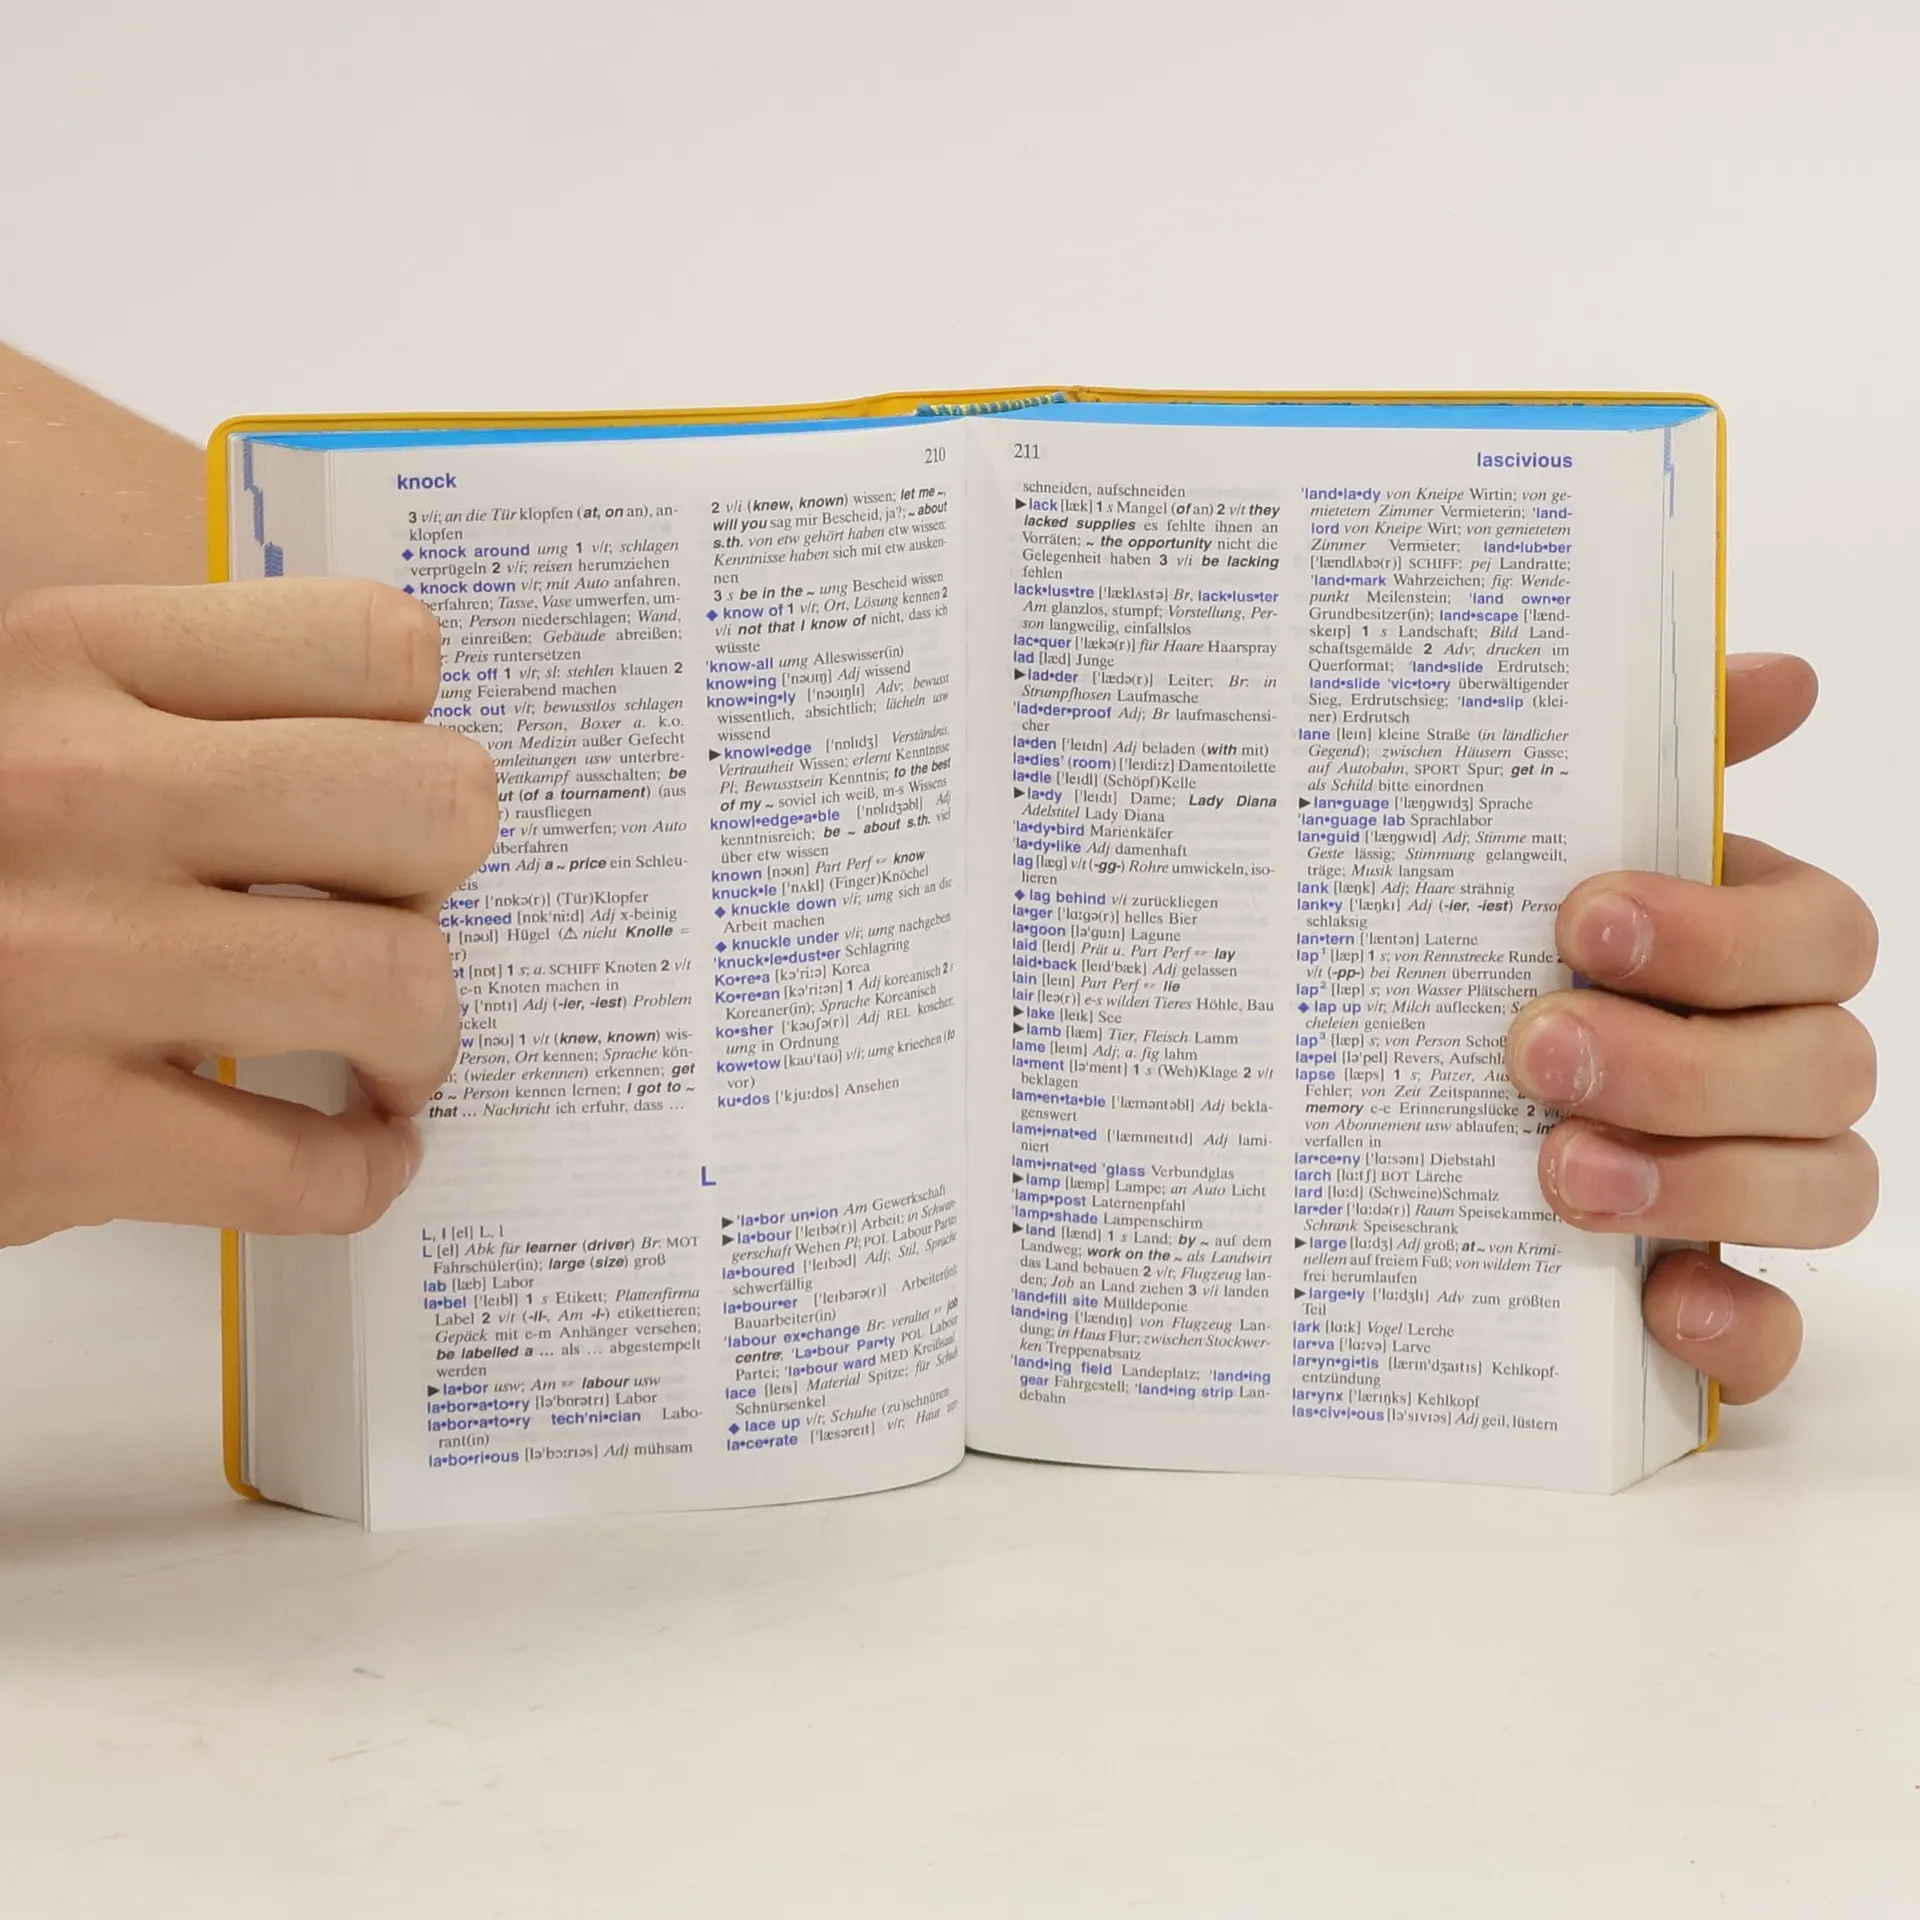 knock
210
3 v/i; an die Tür klopfen (at, on an), an-
klopfen
◆ knock around umg 1 v/t; schlagen
verprügeln 2 v/i; reisen herumziehen
◆ knock down v/t; mit Auto anfahren,
Tasse, Vase umwerfen, um-
Person niederschlagen; Wand,
einreißen; Gebäude abreißen;
Preis runtersetzen
off 1 v/t; sl: stehlen klauen 2
umg Feierabend machen
out v/t; bewusstlos schlagen
Person, Boxer a. k.o.
von Medizin außer Gefecht
usw unterbre-
Wettkampf ausschalten; be
(of a tournament) (aus
rausfliegen
v/t umwerfen; von Auto
überfahren
Adj a ~ price ein Schleu-
['nɒkə(r)] (Tür)Klopfer
[nɒk'ni:d] Adj x-beinig
[nəʊl] Hügel (⚠ nicht Knolle =
[nɒt] 1 s; a. SCHIFF Knoten 2 v/t
e-n Knoten machen in
['nɒtɪ] Adj (-ier, -iest) Problem
[nəʊ] 1 v/t (knew, known) wis-
Person, Ort kennen; Sprache kön-
(wieder erkennen) erkennen; get
~ Person kennen lernen; I got to ~
that ... Nachricht ich erfuhr, dass ...
2 v/i (knew, known) wissen; let me ~,
will you sag mir Bescheid, ja?; ~ about
s.th. von etw gehört haben etw wissen;
Kenntnisse haben sich mit etw ausken-
nen
3 s be in the ~ umg Bescheid wissen
◆ know of 1 v/t; Ort, Lösung kennen 2
v/i not that I know of nicht, dass ich
wüsste
'know-all umg Alleswisser(in)
know•ing ['nəʊɪŋ] Adj wissend
know•ing•ly ['nəʊɪŋlɪ] Adv; bewusst
wissentlich, absichtlich; lächeln usw
wissend
▶ knowl•edge ['nɒlɪdʒ] Verständnis,
Vertrautheit Wissen; erlernt Kenntnisse
Pl; Bewusstsein Kenntnis; to the best
of my ~ soviel ich weiß, m-s Wissens
knowl•edge•a•ble ['nɒlɪdʒəbl] Adj
kenntnisreich; be ~ about s.th. viel
über etw wissen
known [nəʊn] Part Perf ☞ know
knuck•le ['nʌkl] (Finger)Knöchel
◆ knuckle down v/i; umg sich an die
Arbeit machen
◆ knuckle under v/i; umg nachgeben
'knuck•le•dust•er Schlagring
Ko•re•a [kə'ri:ə] Korea
Ko•re•an [kə'ri:ən] 1 Adj koreanisch 2 s
Koreaner(in); Sprache Koreanisch
ko•sher ['kəʊʃə(r)] Adj REL koscher;
umg in Ordnung
kow•tow [kaʊ'taʊ] v/i; umg kriechen (to
vor)
ku•dos ['kju:dɒs] Ansehen
L
L, l [el] L, l
L [el] Abk für learner (driver) Br: MOT
Fahrschüler(in); large (size) groß
lab [læb] Labor
la•bel ['leɪbl] 1 s Etikett; Plattenfirma
Label 2 v/t (-ll-, Am -l-) etikettieren;
Gepäck mit e-m Anhänger versehen;
be labelled a ... als ... abgestempelt
werden
▶ la•bor usw; Am ☞ labour usw
la•bor•a•to•ry [lə'bɒrətrɪ] Labor
la•bor•a•to•ry tech'ni•cian Labo-
rant(in)
la•bo•ri•ous [lə'bɔ:rɪəs] Adj mühsam
▶ 'la•bor un•ion Am Gewerkschaft
▶ la•bour ['leɪbə(r)] Arbeit; in Schwan-
gerschaft Wehen Pl; POL Labour Partei
la•boured ['leɪbəd] Adj; Stil, Sprache
schwerfällig
la•bour•er ['leɪbərə(r)] Arbeiter(in);
Bauarbeiter(in)
'labour ex•change Br: veraltet ☞ job
centre; 'La•bour Par•ty POL Labour
Partei; 'la•bour ward MED Kreißsaal
lace [leɪs] Material Spitze; für Schuh
Schnürsenkel
◆ lace up v/t; Schuhe (zu)schnüren
la•ce•rate ['læsəreɪt] v/t; Haut zer-
211
lascivious
schneiden, aufschneiden
▶ lack [læk] 1 s Mangel (of an) 2 v/t they
lacked supplies es fehlte ihnen an
Vorräten; ~ the opportunity nicht die
Gelegenheit haben 3 v/i be lacking
fehlen
lack•lus•tre ['læklʌstə] Br, lack•lus•ter
Am glanzlos, stumpf; Vorstellung, Per-
son langweilig, einfallslos
lac•quer ['lækə(r)] für Haare Haarspray
lad [læd] Junge
▶ lad•der ['lædə(r)] Leiter; Br: in
Strumpfhosen Laufmasche
'lad•der•proof Adj; Br laufmaschensi-
cher
la•den ['leɪdn] Adj beladen (with mit)
la•dies' (room) ['leɪdi:z] Damentoilette
la•dle ['leɪdl] (Schöpf)Kelle
▶ la•dy ['leɪdɪ] Dame; Lady Diana
Adelstitel Lady Diana
'la•dy•bird Marienkäfer
'la•dy•like Adj damenhaft
lag [læg] v/t (-gg-) Rohre umwickeln, iso-
lieren
◆ lag behind v/i zurückliegen
la•ger ['lɑ:gə(r)] helles Bier
la•goon [lə'gu:n] Lagune
laid [leɪd] Prät u. Part Perf ☞ lay
laid•back [leɪd'bæk] Adj gelassen
lain [leɪn] Part Perf ☞ lie
lair [leə(r)] e-s wilden Tieres Höhle, Bau
▶ lake [leɪk] See
▶ lamb [læm] Tier, Fleisch Lamm
lame [leɪm] Adj; a. fig lahm
la•ment [lə'ment] 1 s (Weh)Klage 2 v/t
beklagen
lam•en•ta•ble ['læməntəbl] Adj bekla-
genswert
lam•i•nat•ed ['læmɪneɪtɪd] Adj lami-
niert
lam•i•nat•ed 'glass Verbundglas
▶ lamp [læmp] Lampe; an Auto Licht
'lamp•post Laternenpfahl
'lamp•shade Lampenschirm
▶ land [lænd] 1 s Land; by ~ auf dem
Landweg; work on the ~ als Landwirt
das Land bebauen 2 v/t; Flugzeug lan-
den; Job an Land ziehen 3 v/i landen
'land•fill site Mülldeponie
land•ing ['lændɪŋ] von Flugzeug Lan-
dung; in Haus Flur; zwischen Stockwer-
ken Treppenabsatz
'land•ing field Landeplatz; 'land•ing
gear Fahrgestell; 'land•ing strip Lan-
debahn
'land•la•dy von Kneipe Wirtin; von ge-
mietetem Zimmer Vermieterin; 'land-
lord von Kneipe Wirt; von gemietetem
Zimmer Vermieter; land•lub•ber
['lændlʌbə(r)] SCHIFF: pej Landratte;
'land•mark Wahrzeichen; fig: Wende-
punkt Meilenstein; 'land own•er
Grundbesitzer(in); land•scape ['lænd-
skeɪp] 1 s Landschaft; Bild Land-
schaftsgemälde 2 Adv; drucken im
Querformat; 'land•slide Erdrutsch;
land•slide 'vic•to•ry überwältigender
Sieg, Erdrutschsieg; 'land•slip (klei-
ner) Erdrutsch
lane [leɪn] kleine Straße (in ländlicher
Gegend); zwischen Häusern Gasse;
auf Autobahn, SPORT Spur; get in ~
als Schild bitte einordnen
▶ lan•guage ['læŋgwɪdʒ] Sprache
'lan•guage lab Sprachlabor
lan•guid ['læŋgwɪd] Adj; Stimme matt;
Geste lässig; Stimmung gelangweilt,
träge; Musik langsam
lank [læŋk] Adj; Haare strähnig
lank•y ['læŋkɪ] Adj (-ier, -iest) Person
schlaksig
lan•tern ['læntən] Laterne
lap¹ [læp] 1 s; von Rennstrecke Runde 2
v/t (-pp-) bei Rennen überrunden
lap² [læp] s; von Wasser Plätschern
◆ lap up v/t; Milch auflecken;
cheleien genießen
lap³ [læp] s; von Person Schoß
la•pel [lə'pel] Revers,
lapse [læps] 1 s; Patzer,
Fehler; von Zeit Zeitspanne;
memory e-e Erinnerungslücke 2 v/i;
von Abonnement usw ablaufen; ~
verfallen in
lar•ce•ny ['lɑ:sənɪ] Diebstahl
larch [lɑ:tʃ] BOT Lärche
lard [lɑ:d] (Schweine)Schmalz
lar•der ['lɑ:də(r)] Raum Speisekammer;
Schrank Speiseschrank
▶ large [lɑ:dʒ] Adj groß; at ~ von Krimi-
nellem auf freiem Fuß; von wildem Tier
frei herumlaufen
▶ large•ly ['lɑ:dʒlɪ] Adv zum größten
Teil
lark [lɑ:k] Vogel Lerche
lar•va ['lɑ:və] Larve
lar•yn•gi•tis [lærɪn'dʒaɪtɪs] Kehlkopf-
entzündung
lar•ynx ['lærɪŋks] Kehlkopf
las•civ•i•ous [lə'sɪvɪəs] Adj geil, lüstern